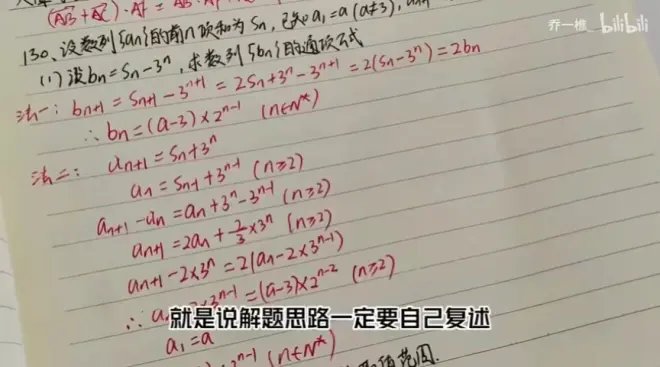 (AB+AC)·AF = AB·A
乔一樵_ bilibili
130、设数列{an}的前n项和为Sn,已知a1=a(a≠3),an+1
(1)设bn=Sn-3^n,求数列{bn}的通项公式
法一:bn+1=Sn+1-3^n+1=2Sn+3^n-3^n+1=2(Sn-3^n)=2bn
∴bn=(a-3)×2^n-1 (n∈N*)
法二:an+1=Sn+3^n
an=Sn-1+3^n-1 (n≥2)
an+1-an=an+3^n-3^n-1 (n≥2)
an+1=2an+2/3×3^n (n≥2)
an+1-2×3^n=2(an-2×3^n-1)
∴a 3^n-1=(a-3)×2^n-2 (n≥2)
就是说解题思路一定要自己复述
a1=a
2^n-1 (n∈N*)
取值范围.